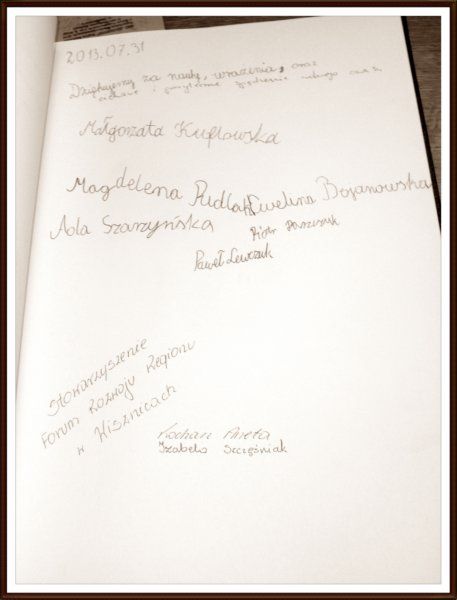 2013.07.31
Dziękujemy za naukę, wrażenia, oraz
ciekawe i spędzenie wolnego czasu
Małgorzata
Magdelena Ewelina Bojanowska
Ada Szarzyńska Piotr
Paweł Lewczuk
Stowarzyszenie
Forum Rozwoju Regionu
w Wisznicach
Kochan Aneta
Izabela Szcześniak